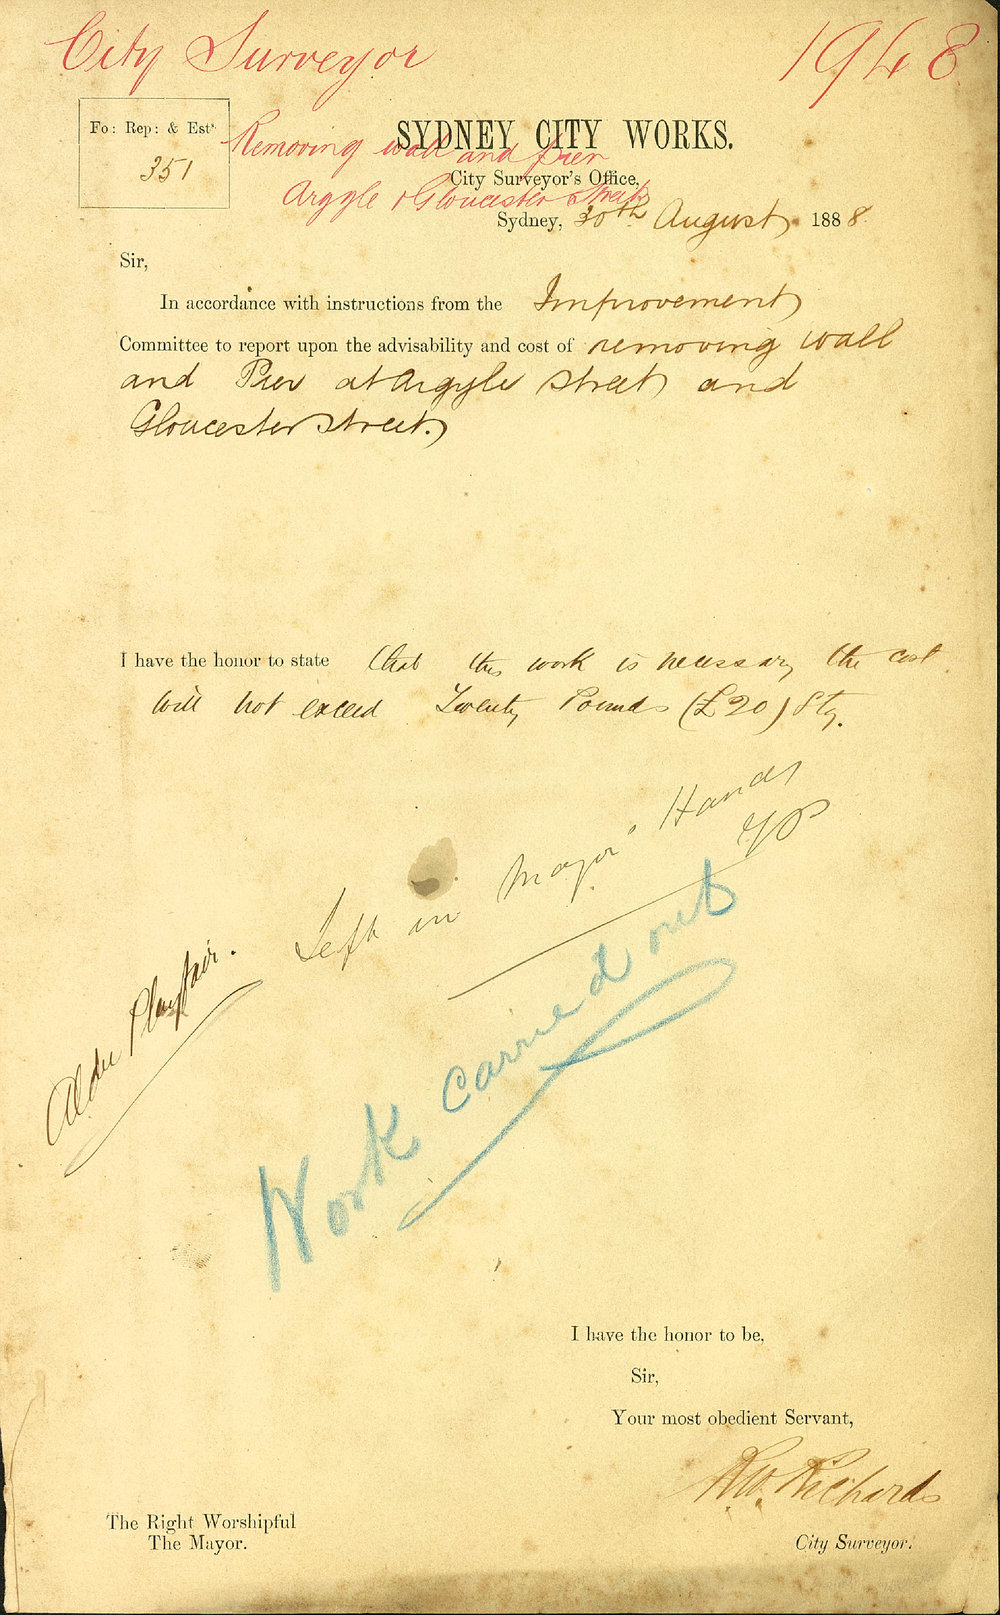 City Surveyor
1948
Fo: Rep: & Est:
351
Removing wall and pier
Argyle & Gloucester Streets
SYDNEY CITY WORKS.
City Surveyor's Office,
Sydney, 30th August 1888.
Sir,
In accordance with instructions from the Improvement
Committee to report upon the advisability and cost of removing wall
and Pier at Argyle Street and
Gloucester Street.
I have the honor to state that this work is necessary the cost
will not exceed Twenty Pounds (£20) Stg.
Left in Mayor's Hands
Alder Playfair.
Work Carried out
I have the honor to be,
Sir,
Your most obedient Servant,
R.W. Richards
The Right Worshipful
The Mayor.
City Surveyor.